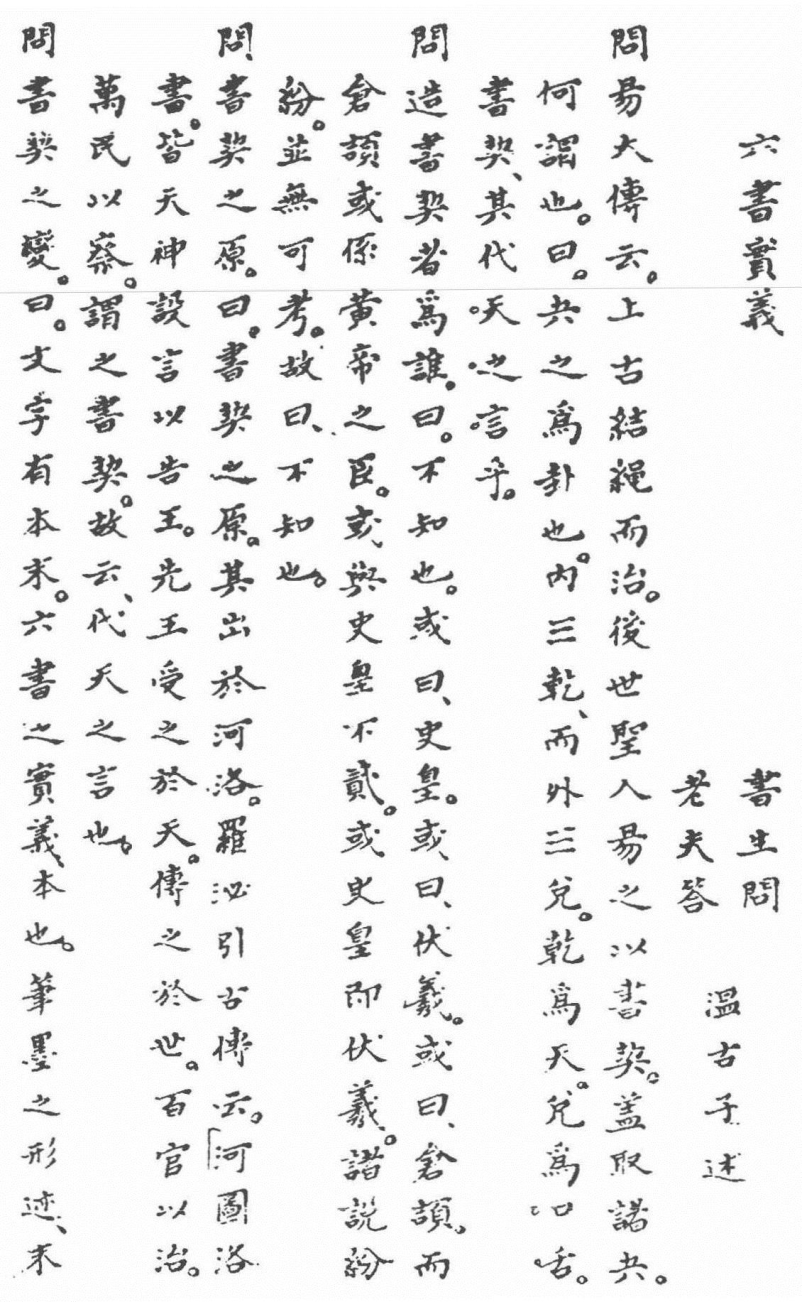 六書實義
書生問
老夫答
溫古子述
問易大傳云。上古結繩而治。後世聖人易之以書契。蓋取諸夬。
何謂也。曰。夬之爲卦也。內三乾、而外三兌。乾爲天。兌爲口舌。
書契、其代天之言乎。
問造書契者爲誰。曰。不知也。或曰、史皇。或曰、伏羲。或曰、倉頡。而
倉頡或係黃帝之臣。或與史皇不貳。或史皇即伏羲。諸說紛
紛。並無可考。故曰、不知也。
問書契之原。曰。書契之原。其出於河洛。羅泌引古傳云。「河圖洛
書。皆天神設言以告王。先王受之於天。傳之於世。百官以治。
萬民以察。謂之書契。故云、代天之言也。
問書契之變。曰。文字有本末。六書之實義、本也。筆墨之形迹、末